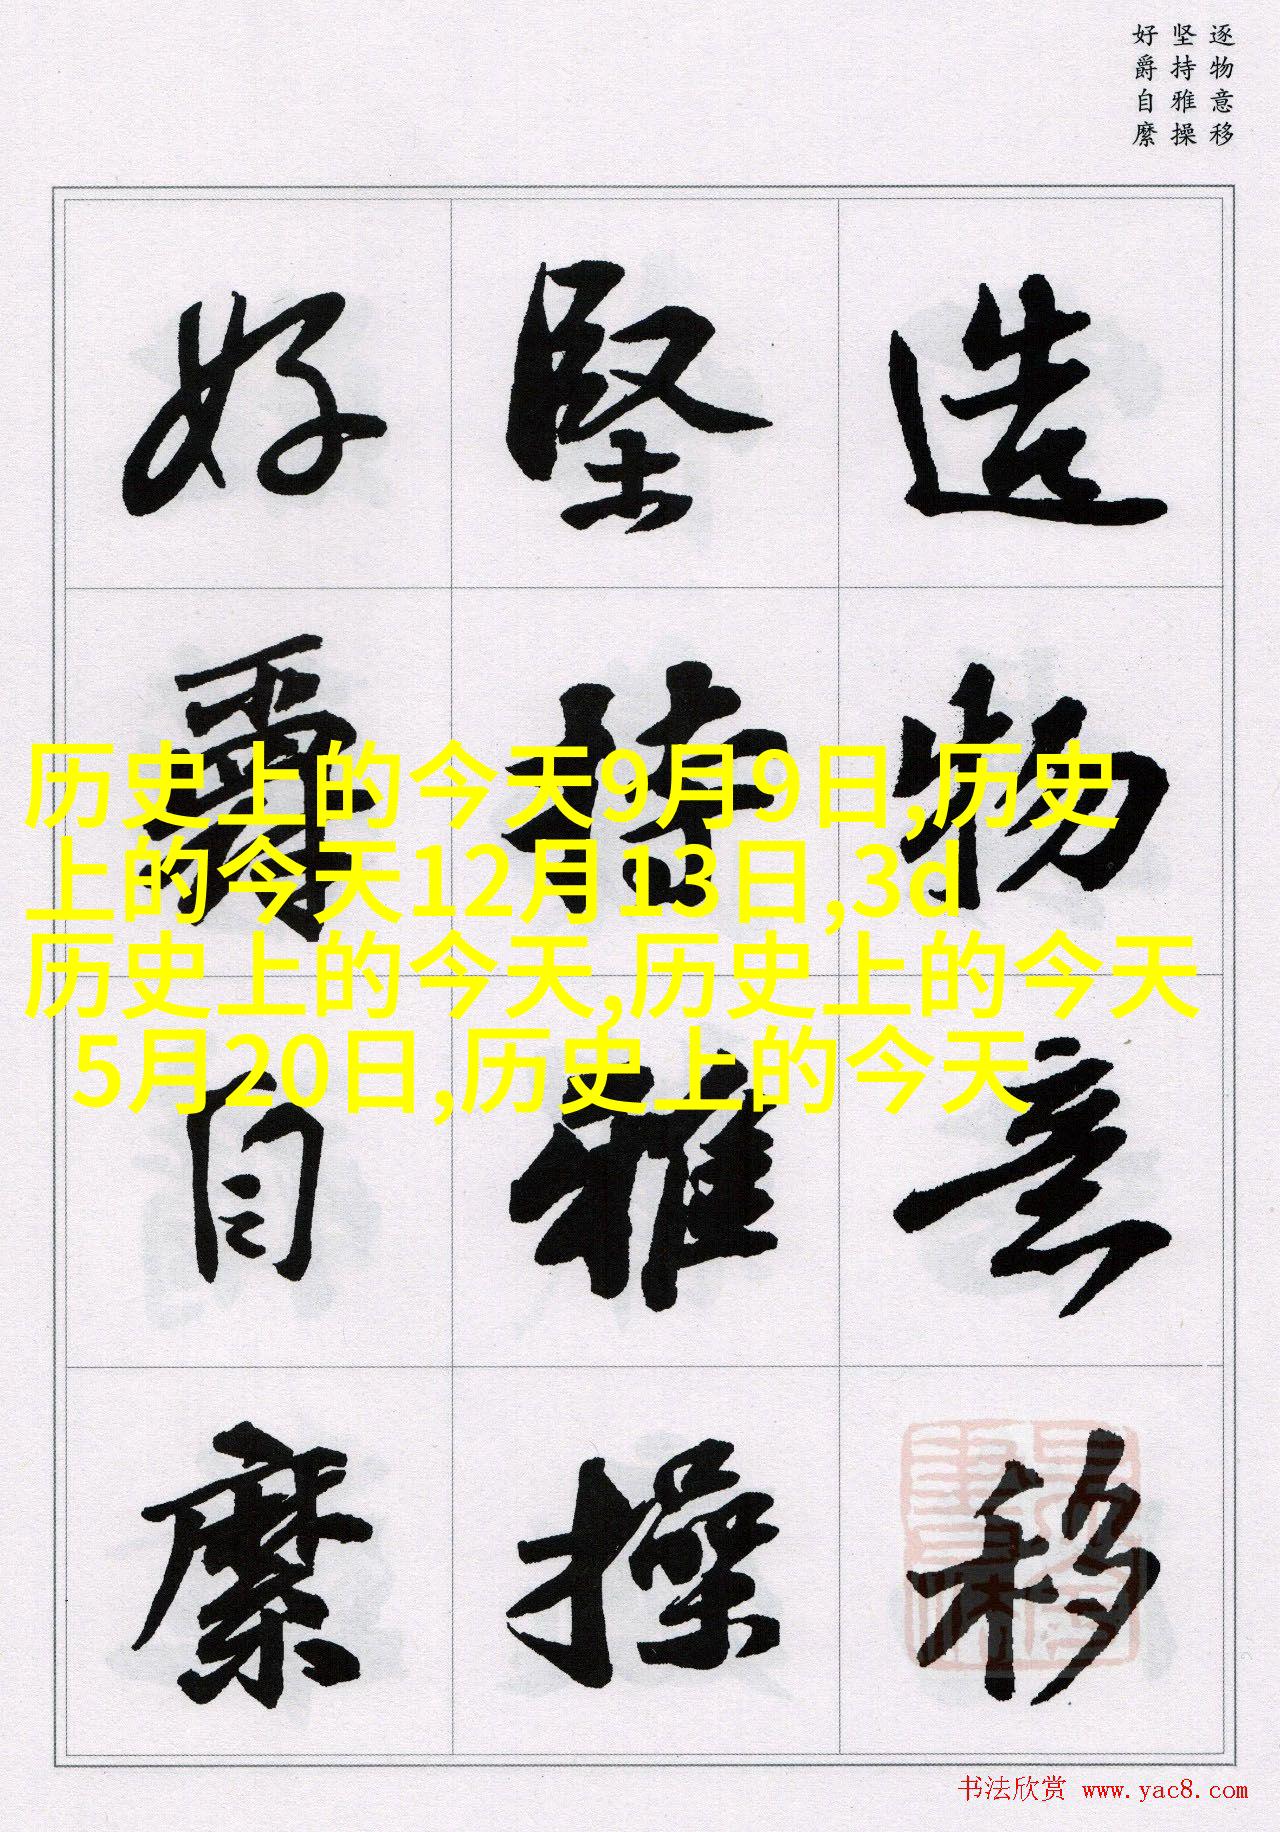 逐物意移
坚持雅操
好爵自縻
造物意移
堅持雅操
好爵自縻
历史上的今天9月9日,历史
上的今天12月13日,3d
历史上的今天,历史上的今天
5月20日,历史上的今天
书法欣赏 www.yac8.com